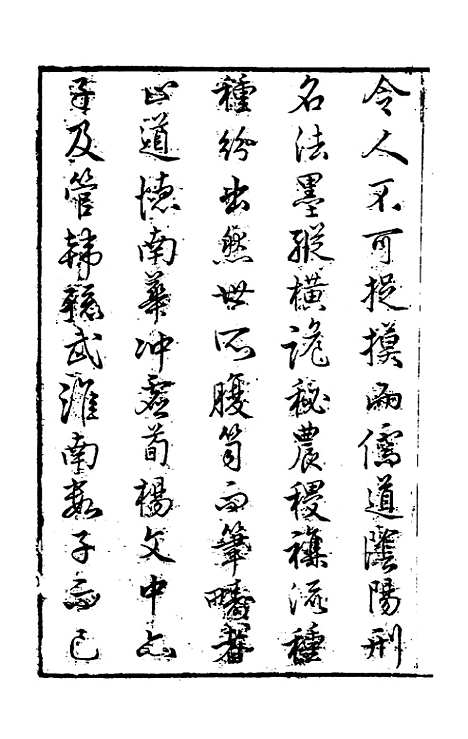 令人不可捉摸而儒道陰陽刑
名法墨縱橫詭秘農稷襍流種
種紛出然世所腹笥而筆疇者
止道德南華冲虛荀楊文中文
子及管韓孫武淮南數子而已